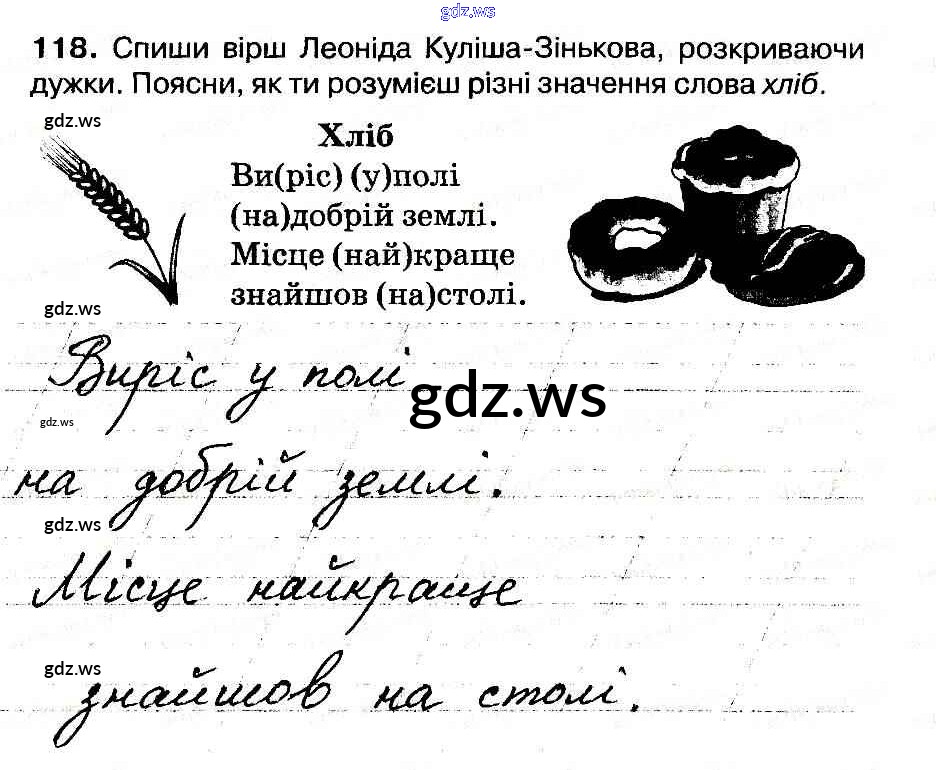 gdz.ws
118. Спиши вірш Леоніда Куліша-Зінькова, розкриваючи
дужки. Поясни, як ти розумієш різні значення слова хліб.
gdz.ws
Хліб
Ви(ріс) (у)полі
(на)добрій землі.
Місце (най)краще
знайшов (на)столі.
gdz.ws
Виріс у полі
gdz.ws
gdz.ws
на добрій землі.
gdz.ws
Місце найкраще
gdz.ws
знайшов на столі.